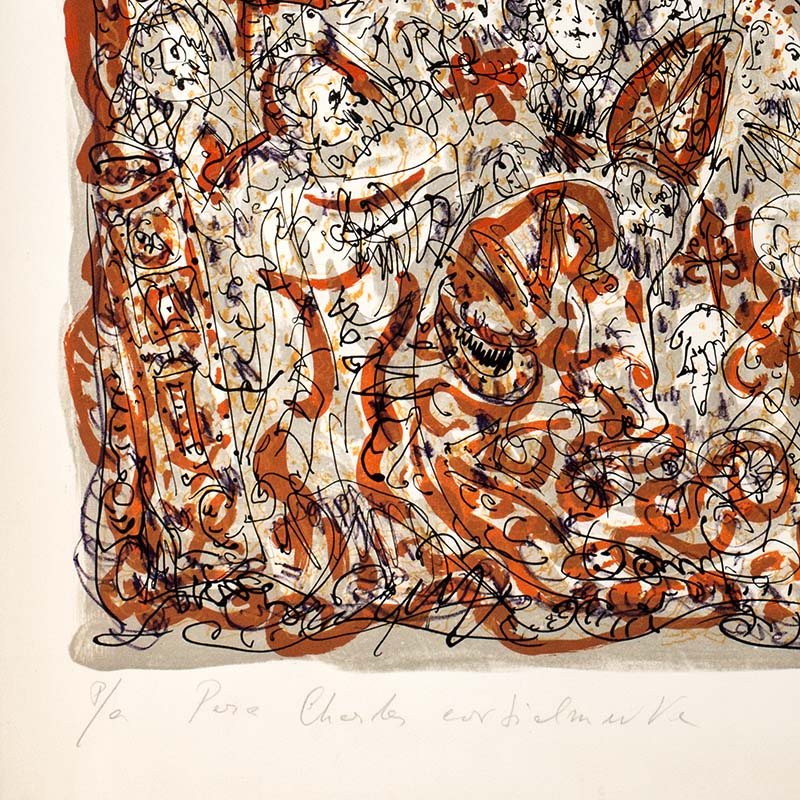 P/a Para Charles cordialmente